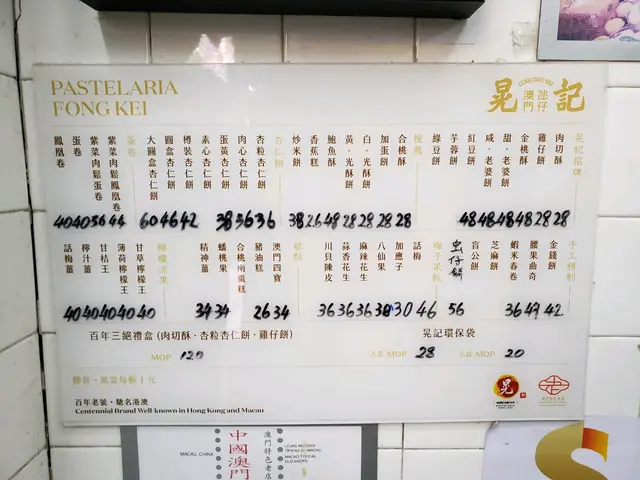 PASTELARIA
FONG KEI
晃記
澳門
氹仔
晃記招牌
肉切酥 28
雞仔餅 28
金桃酥 48
甜·老婆餅 48
咸·老婆餅 48
紅豆餅 48
芋蓉餅
綠豆餅
推薦
合桃酥 28
加蛋餅 28
白·光酥餅 28
黃·光酥餅 28
鮑魚酥 48
香蕉糕 26
炒米餅 38
杏仁餅
杏粒杏仁餅 36
肉心杏仁餅 36
蛋黃杏仁餅 38
素心杏仁餅
樽裝杏仁餅 42
圓盒杏仁餅 46
大圓盒杏仁餅 60
蛋卷
紫菜肉鬆鳳凰卷 44
紫菜肉鬆蛋卷 56
蛋卷 40
鳳凰卷 40
手工精制
金錢餅 42
腰果曲奇 49
蝦米春卷 36
芝麻餅
盲公餅
虫仔餅 56
梅子果乾
話梅 46
加應子 30
八仙果 38
麻辣花生 36
蒜香花生 36
川貝陳皮 36
糕點
澳門四寶 34
豬油糕 26
合桃南棗糕
蟠桃果 34
精神薑 34
檸檬涼果
甘草檸檬王 40
薄荷檸檬王 40
甘桔王 40
檸汁薑 40
話梅薑 40
百年三絕禮盒 (肉切酥·杏粒杏仁餅·雞仔餅)
MOP 120
晃記環保袋
MOP 28
MOP 20
膠袋、紙盒每個 1 元
百年老號·馳名港澳
Centennial Brand Well-known in Hong Kong and Macau
MACAU CHINA
中國澳門
澳門特色老店
LOJAS ANTIGAS
TÍPICAS DE MACAU
MACAO TYPICAL
OLD SHOPS